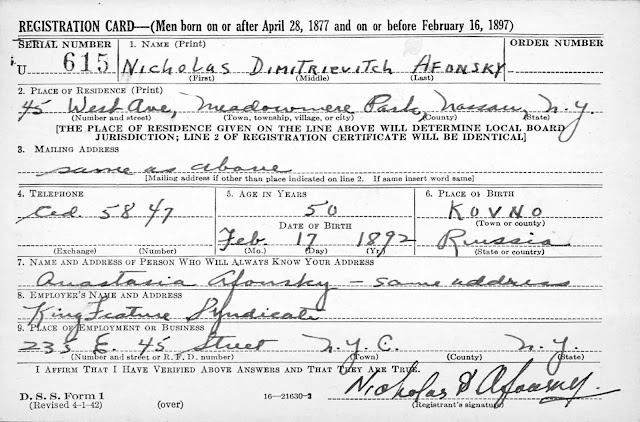 REGISTRATION CARD—(Men born on or after April 28, 1877 and on or before February 16, 1897)
SERIAL NUMBER 1. NAME (Print) ORDER NUMBER
U 615 NICHOLAS DIMITRIEVITCH AFONSKY
(First) (Middle) (Last)
2. PLACE OF RESIDENCE (Print)
45 West Ave, Meadowmere Park, Nassau, N.Y.
(Number and street) (Town, township, village, or city) (County) (State)
[THE PLACE OF RESIDENCE GIVEN ON THE LINE ABOVE WILL DETERMINE LOCAL BOARD
JURISDICTION; LINE 2 OF REGISTRATION CERTIFICATE WILL BE IDENTICAL]
3. MAILING ADDRESS
same as above
[Mailing address if other than place indicated on line 2. If same insert word same]
4. TELEPHONE 5. AGE IN YEARS 6. PLACE OF BIRTH
Ced. 5847 50 KOVNO
DATE OF BIRTH (Town or county)
Feb. 17 1892 Russia
(Exchange) (Number) (Mo.) (Day) (Yr.) (State or country)
7. NAME AND ADDRESS OF PERSON WHO WILL ALWAYS KNOW YOUR ADDRESS
Anastasia Afonsky — same address
8. EMPLOYER'S NAME AND ADDRESS
King Feature Syndicate
9. PLACE OF EMPLOYMENT OR BUSINESS
235 E. 45 Street N.Y.C. N.Y.
(Number and street or R. F. D. number) (Town) (County) (State)
I AFFIRM THAT I HAVE VERIFIED ABOVE ANSWERS AND THAT THEY ARE TRUE.
Nicholas D Afonsky.
D. S. S. Form 1
(Revised 4-1-42) (over) 16—21630-2 (Registrant's signature)